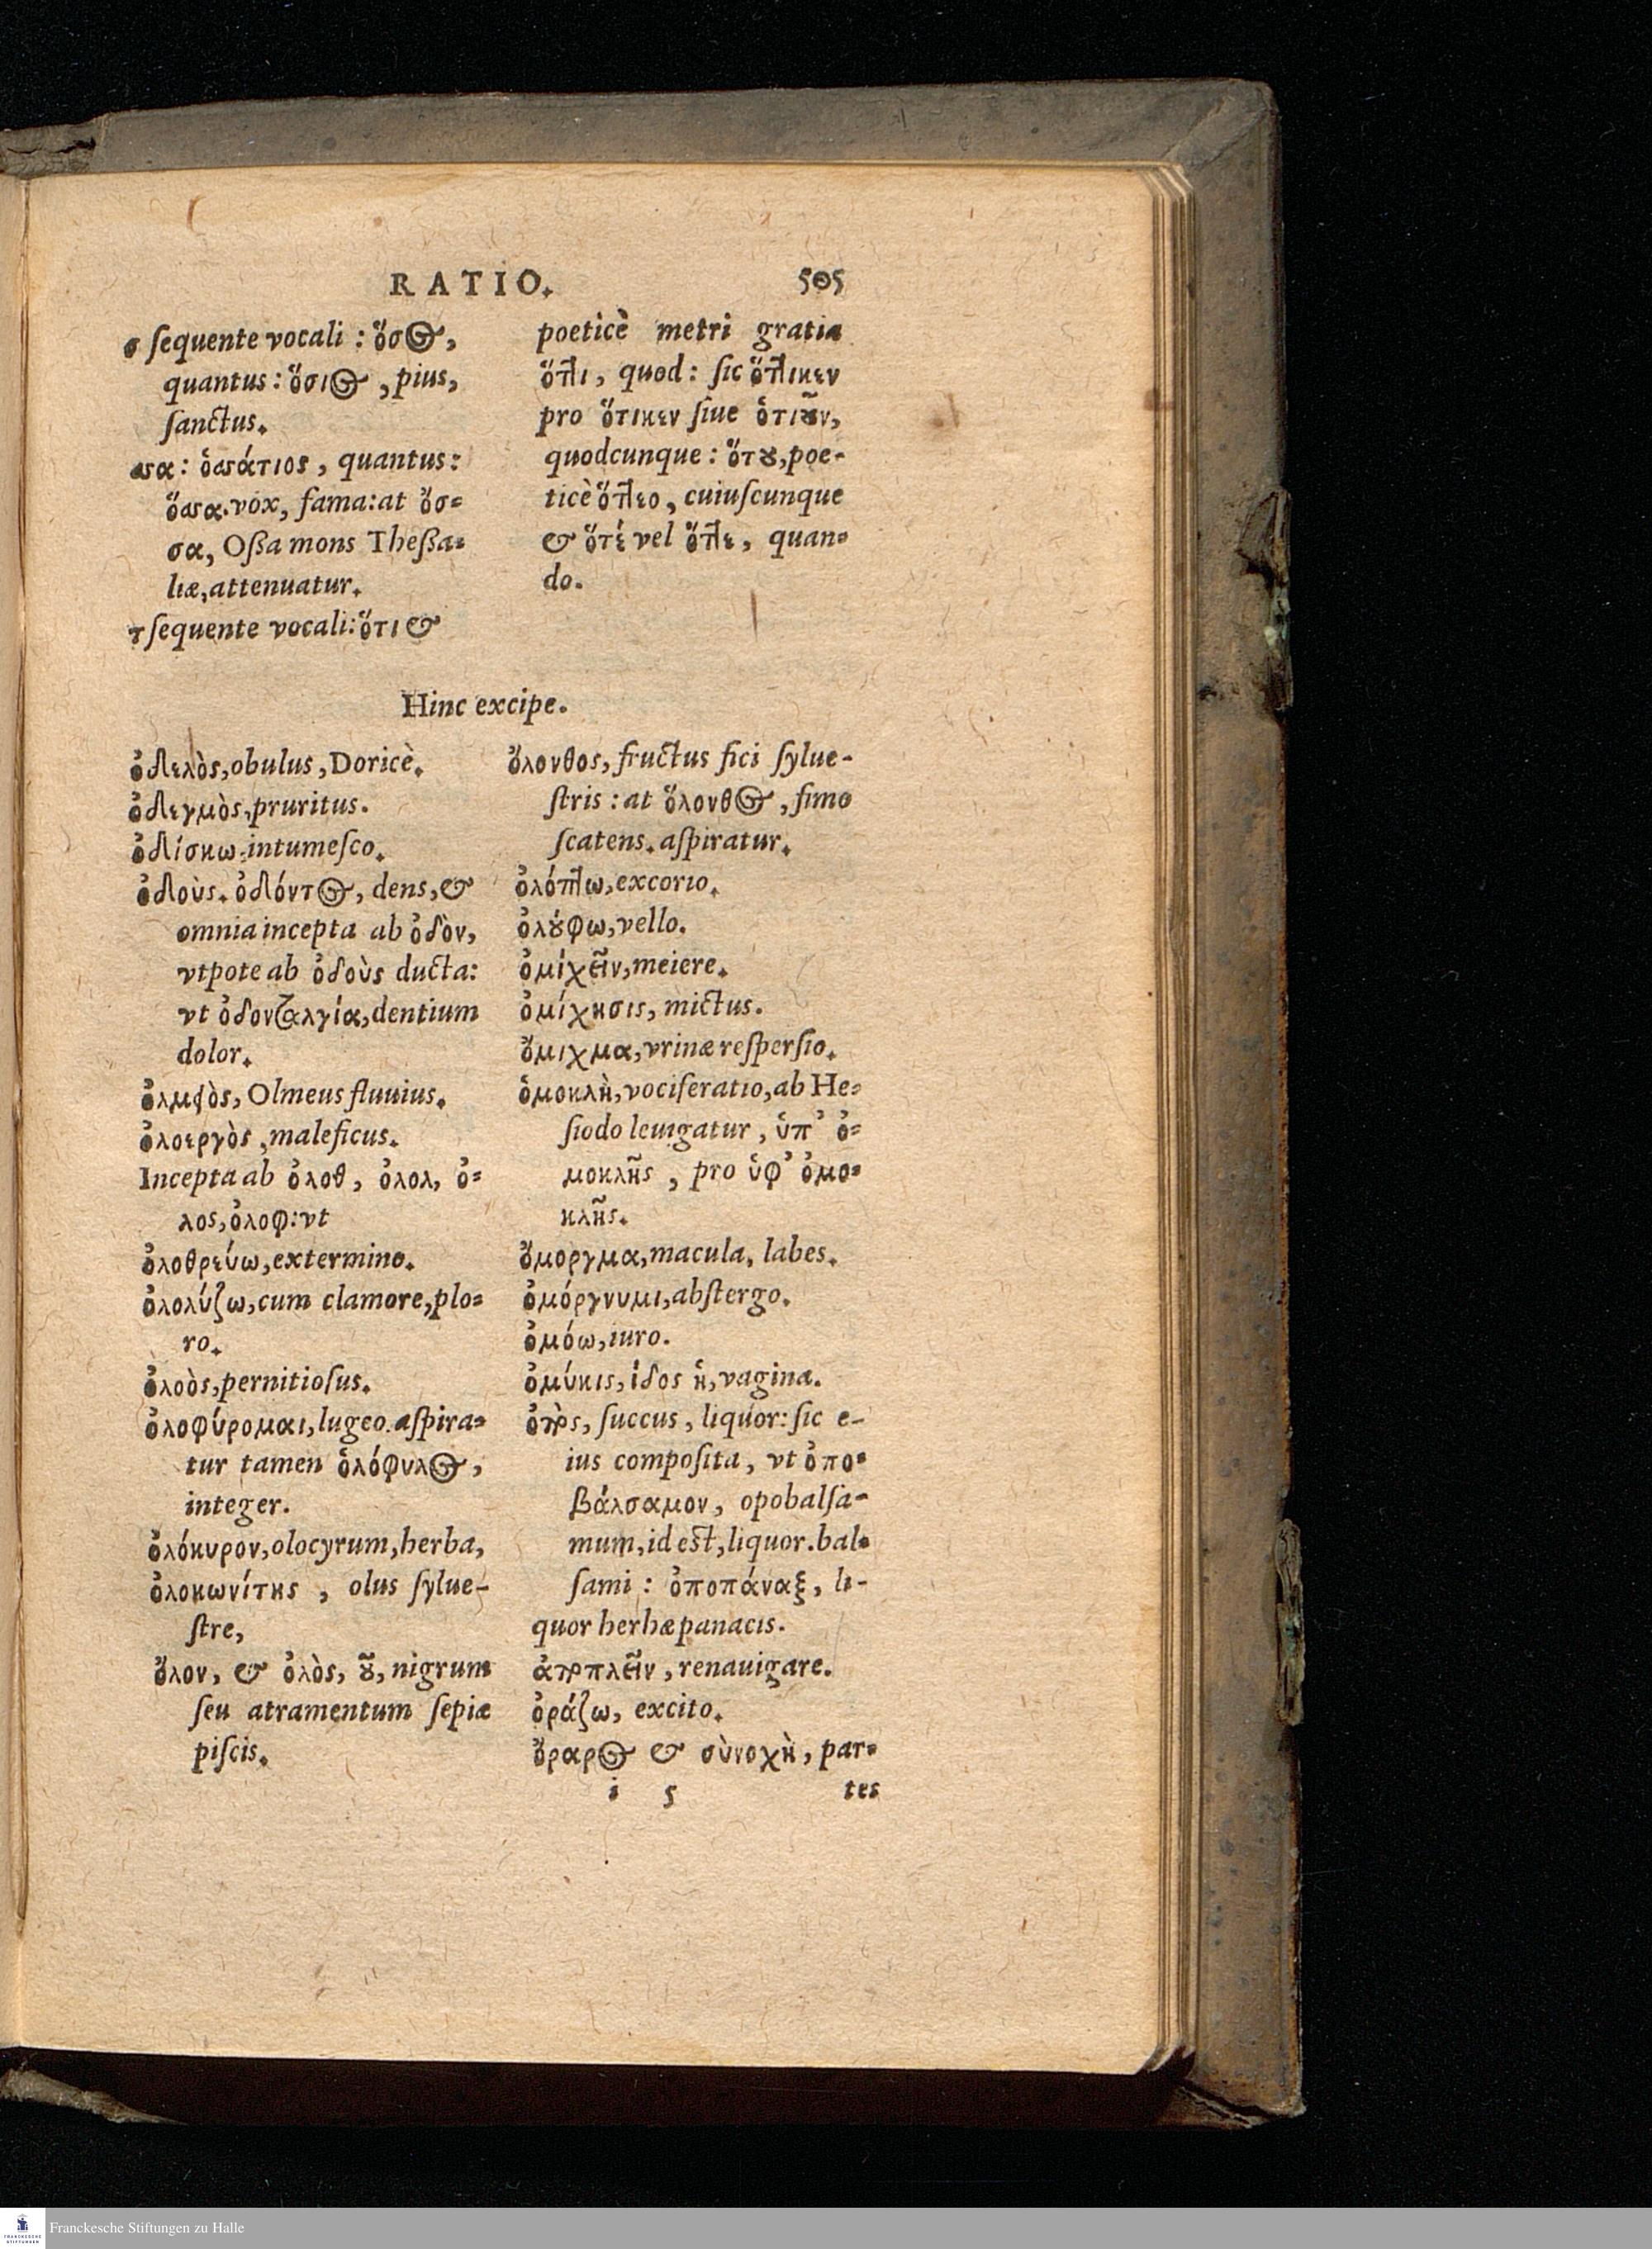 RATIO. 505
σ ſequente vocali : ὅσος,
quantus: ὅσιος, pius,
ſanctus.
σσα: ὁσσάτιος, quantus:
ὅσσα. vox, fama: at ὄσ=
σα, Oſſa mons Theſſa=
liæ, attenuatur.
τ ſequente vocali: ὅτι &
poeticè metri gratia
ὅττι, quod: ſic ὅττικεν
pro ὅτικεν ſiue ὁτιοῦν,
quodcunque: ὅτου, poe-
ticè ὅττεο, cuiuſcunque
& ὅτέ vel ὅττε, quan=
do.
Hinc excipe.
ὀδελὸς, obulus, Doricè.
ὀδεγμὸς, pruritus.
ὀδίσκω, intumeſco.
ὀδοὺς. ὀδόντος, dens, &
omnia incepta ab ὀδὸν,
vtpote ab ὀδοὺς ducta:
vt ὀδονταλγία, dentium
dolor.
ὀλμειὸς, Olmeus fluuius.
ὀλοεργὸς, maleficus.
Incepta ab ὀλοθ, ὀλολ, ὀ=
λος, ὀλοφ: vt
ὀλοθρεύω, extermino.
ὀλολύζω, cum clamore, plo=
ro.
ὀλοὸς, pernitioſus.
ὀλοφύρομαι, lugeo. aſpira=
tur tamen ὁλόφυλος,
integer.
ὀλόκυρον, olocyrum, herba,
ὀλοκωνίτης, olus ſylue-
ſtre,
ὄλον, & ὀλὸς, οῦ, nigrum
ſeu atramentum ſepiæ
piſcis.
ὄλονθος, fructus fici ſylue-
ſtris: at ὅλονθος, fimo
ſcatens. aſpiratur.
ὀλόπτω, excorio.
ὀλούφω, vello.
ὀμίχεῖν, meiere.
ὀμίχησις, mictus.
ὄμιχμα, vrinæ reſperſio.
ὁμοκλὴ, vociferatio, ab He=
ſiodo leuigatur, ὑπ' ὀ=
μοκλῆς, pro ὑφ' ὁμο=
κλῆς.
ὄμοργμα, macula, labes.
ὀμόργνυμι, abſtergo.
ὀμόω, iuro.
ὀμύκις, ίδος ἡ, vagina.
ὀπὸς, ſuccus, liquor: ſic e-
ius compoſita, vt ὀπο=
βάλσαμον, opobalſa-
mum, id eſt, liquor. bal=
ſami: ὀποπάναξ, li-
quor herbæ panacis.
ἀποπλεῖν, renauigare.
ὀράζω, excito.
ὄραρος & σὺνοχὴ, par=
i 5 tes
Franckesche Stiftungen zu Halle
FRANCKESCHE
STIFTUNGEN